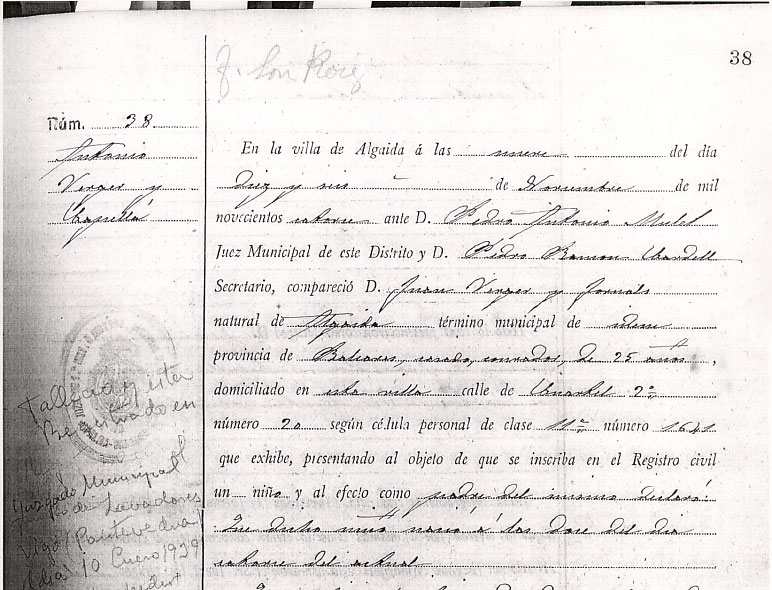 38
f. Son Roig
Núm. 38
Antonio
Verger y
Capellá
En la villa de Algaida á las nueve del día
diez y seis de Noviembre de mil
novecientos catorce ante D. Pedro Antonio Mulet
Juez Municipal de este Distrito y D. Pedro Ramon
Secretario, compareció D. Juan Verger y
natural de Algaida término municipal de idem
provincia de Baleares, casado, de 25 años,
domiciliado en esta villa calle de Cuartel 2º
número 20 según célula personal de clase 11ª número 1641
que exhibe, presentando al objeto de que se inscriba en el Registro civil
un niño y al efecto como padre del mismo declaró:
Que dicho niño nació á las doce del día
catorce del actual
Falleció y esta
en
Juzgado Municipal
de Lavadores
Vigo (Pontevedra)
día 10 Enero 1939